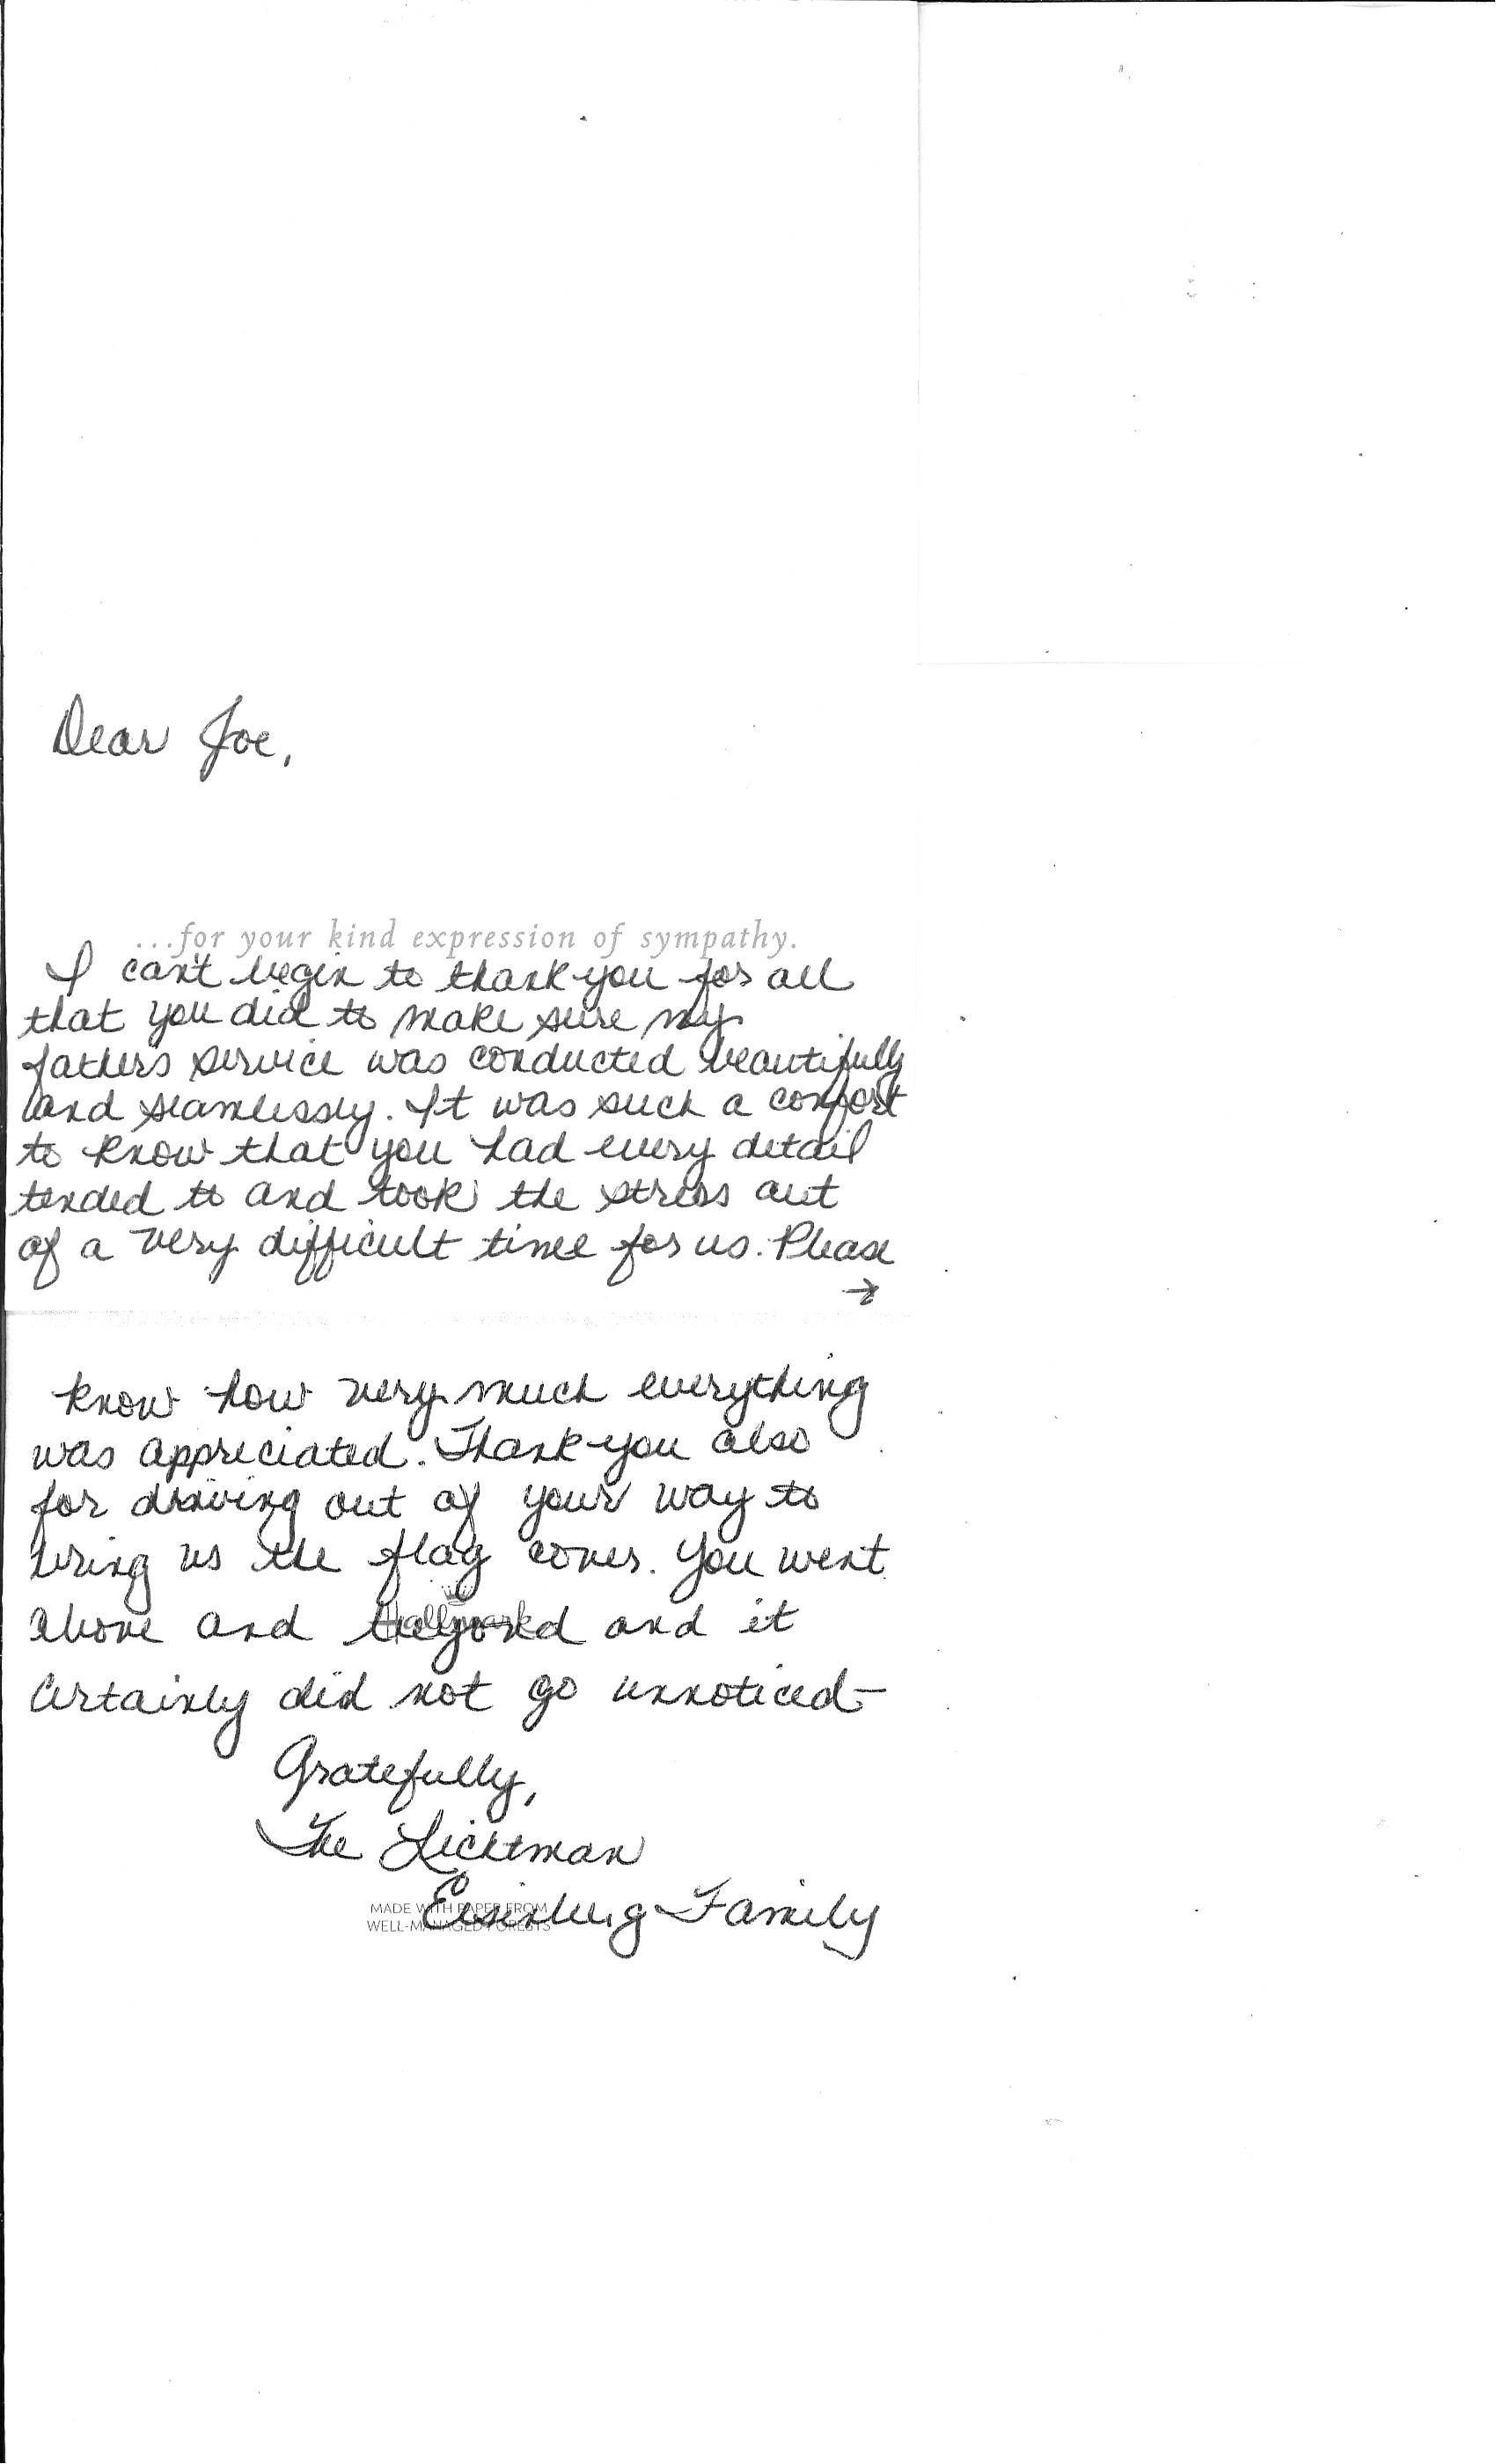 Dear Joe,
...for your kind expression of sympathy.
I can't begin to thank you for all
that you did to make sure my
father's service was conducted beautifully
and seamlessly. It was such a comfort
to know that you had every detail
tended to and took the stress out
of a very difficult time for us. Please
→
know how very much everything
was appreciated. Thank you also
for driving out of your way to
bring us the flag cover. You went
above and beyond and it
Hallmark
certainly did not go unnoticed—
Gratefully,
The Lichtman
Eisenberg Family
MADE WITH PAPER FROM
WELL-MANAGED FORESTS